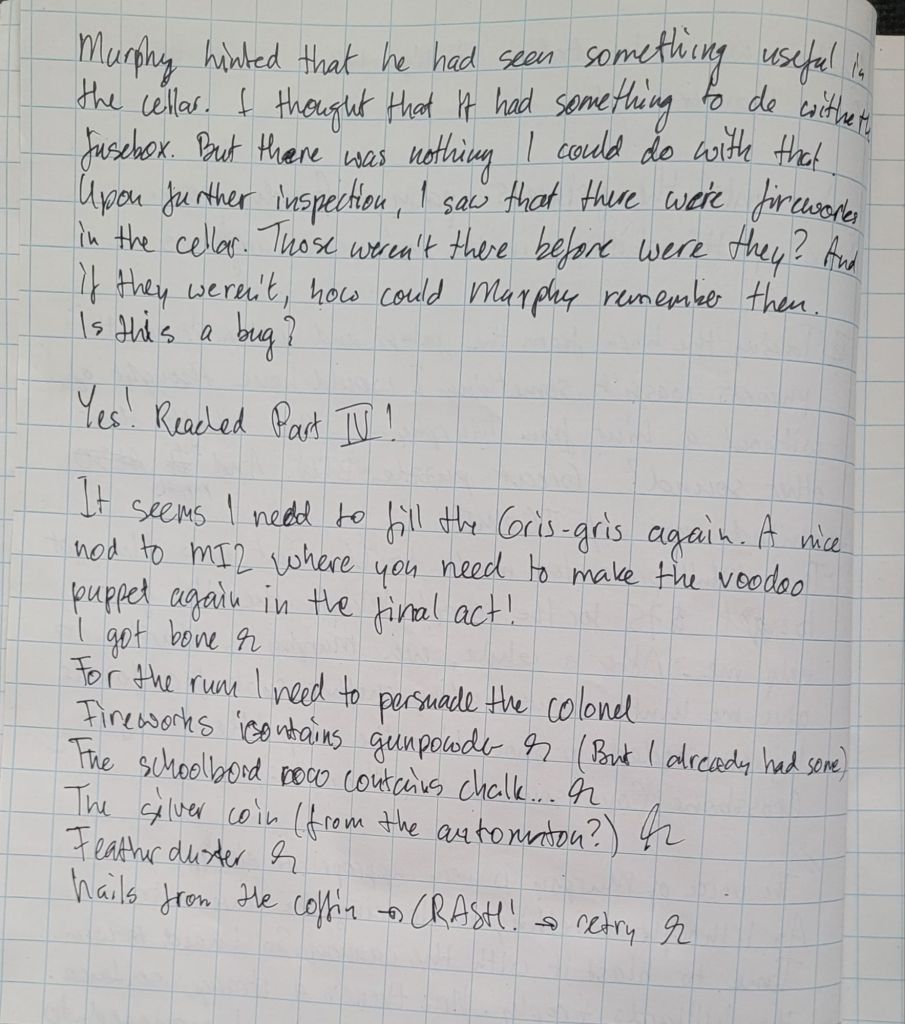 Murphy hinted that he had seen something useful in
the cellar. I thought that it had something to do withe the
fusebox. But there was nothing I could do with that.
Upon further inspection, I saw that there were fireworks
in the cellar. Those weren't there before were they? And
if they weren't, how could Murphy remember then.
Is this a bug?
Yes! Reached Part IV!
It seems I need to fill the Gris-gris again. A nice
nod to MI2 where you need to make the voodoo
puppet again in the final act!
I got bone
For the rum I need to persuade the colonel
Fireworks contains gunpowder (But I already had some)
The schoolbord now contains chalk...
The silver coin (from the automaton?)
Feather duster
Nails from the coffin → CRASH! → retry